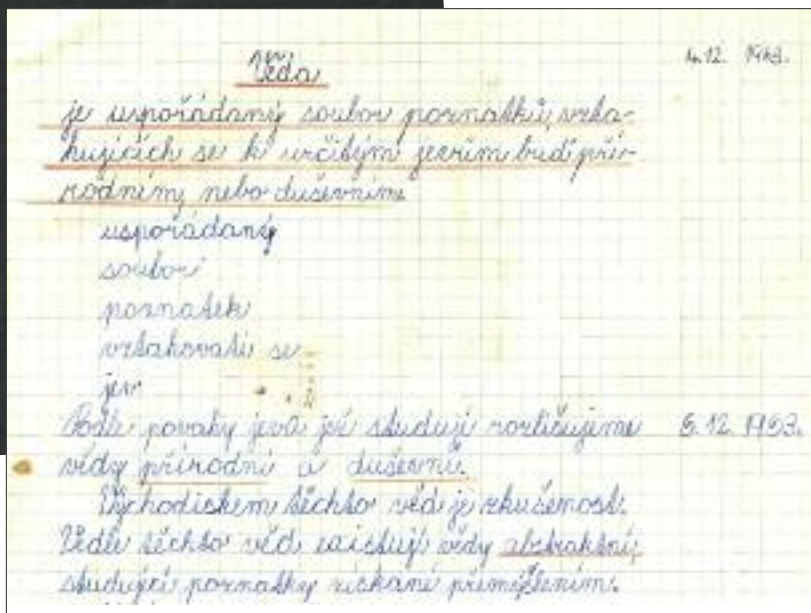 Věda 4.12. 1963.
je uspořádaný soubor poznatků, vzta-
hujících se k určitým jevům buď pří-
rodním, nebo duševním
uspořádaný
soubor
poznatek
vztahovati se
jev
Podle povahy jevů jež studují rozlišujeme 6.12. 1963.
vědy přírodní a duševní.
Východiskem těchto věd je zkušenost.
Vedle těchto věd existují vědy abstraktní,
studující poznatky získané přemýšlením.